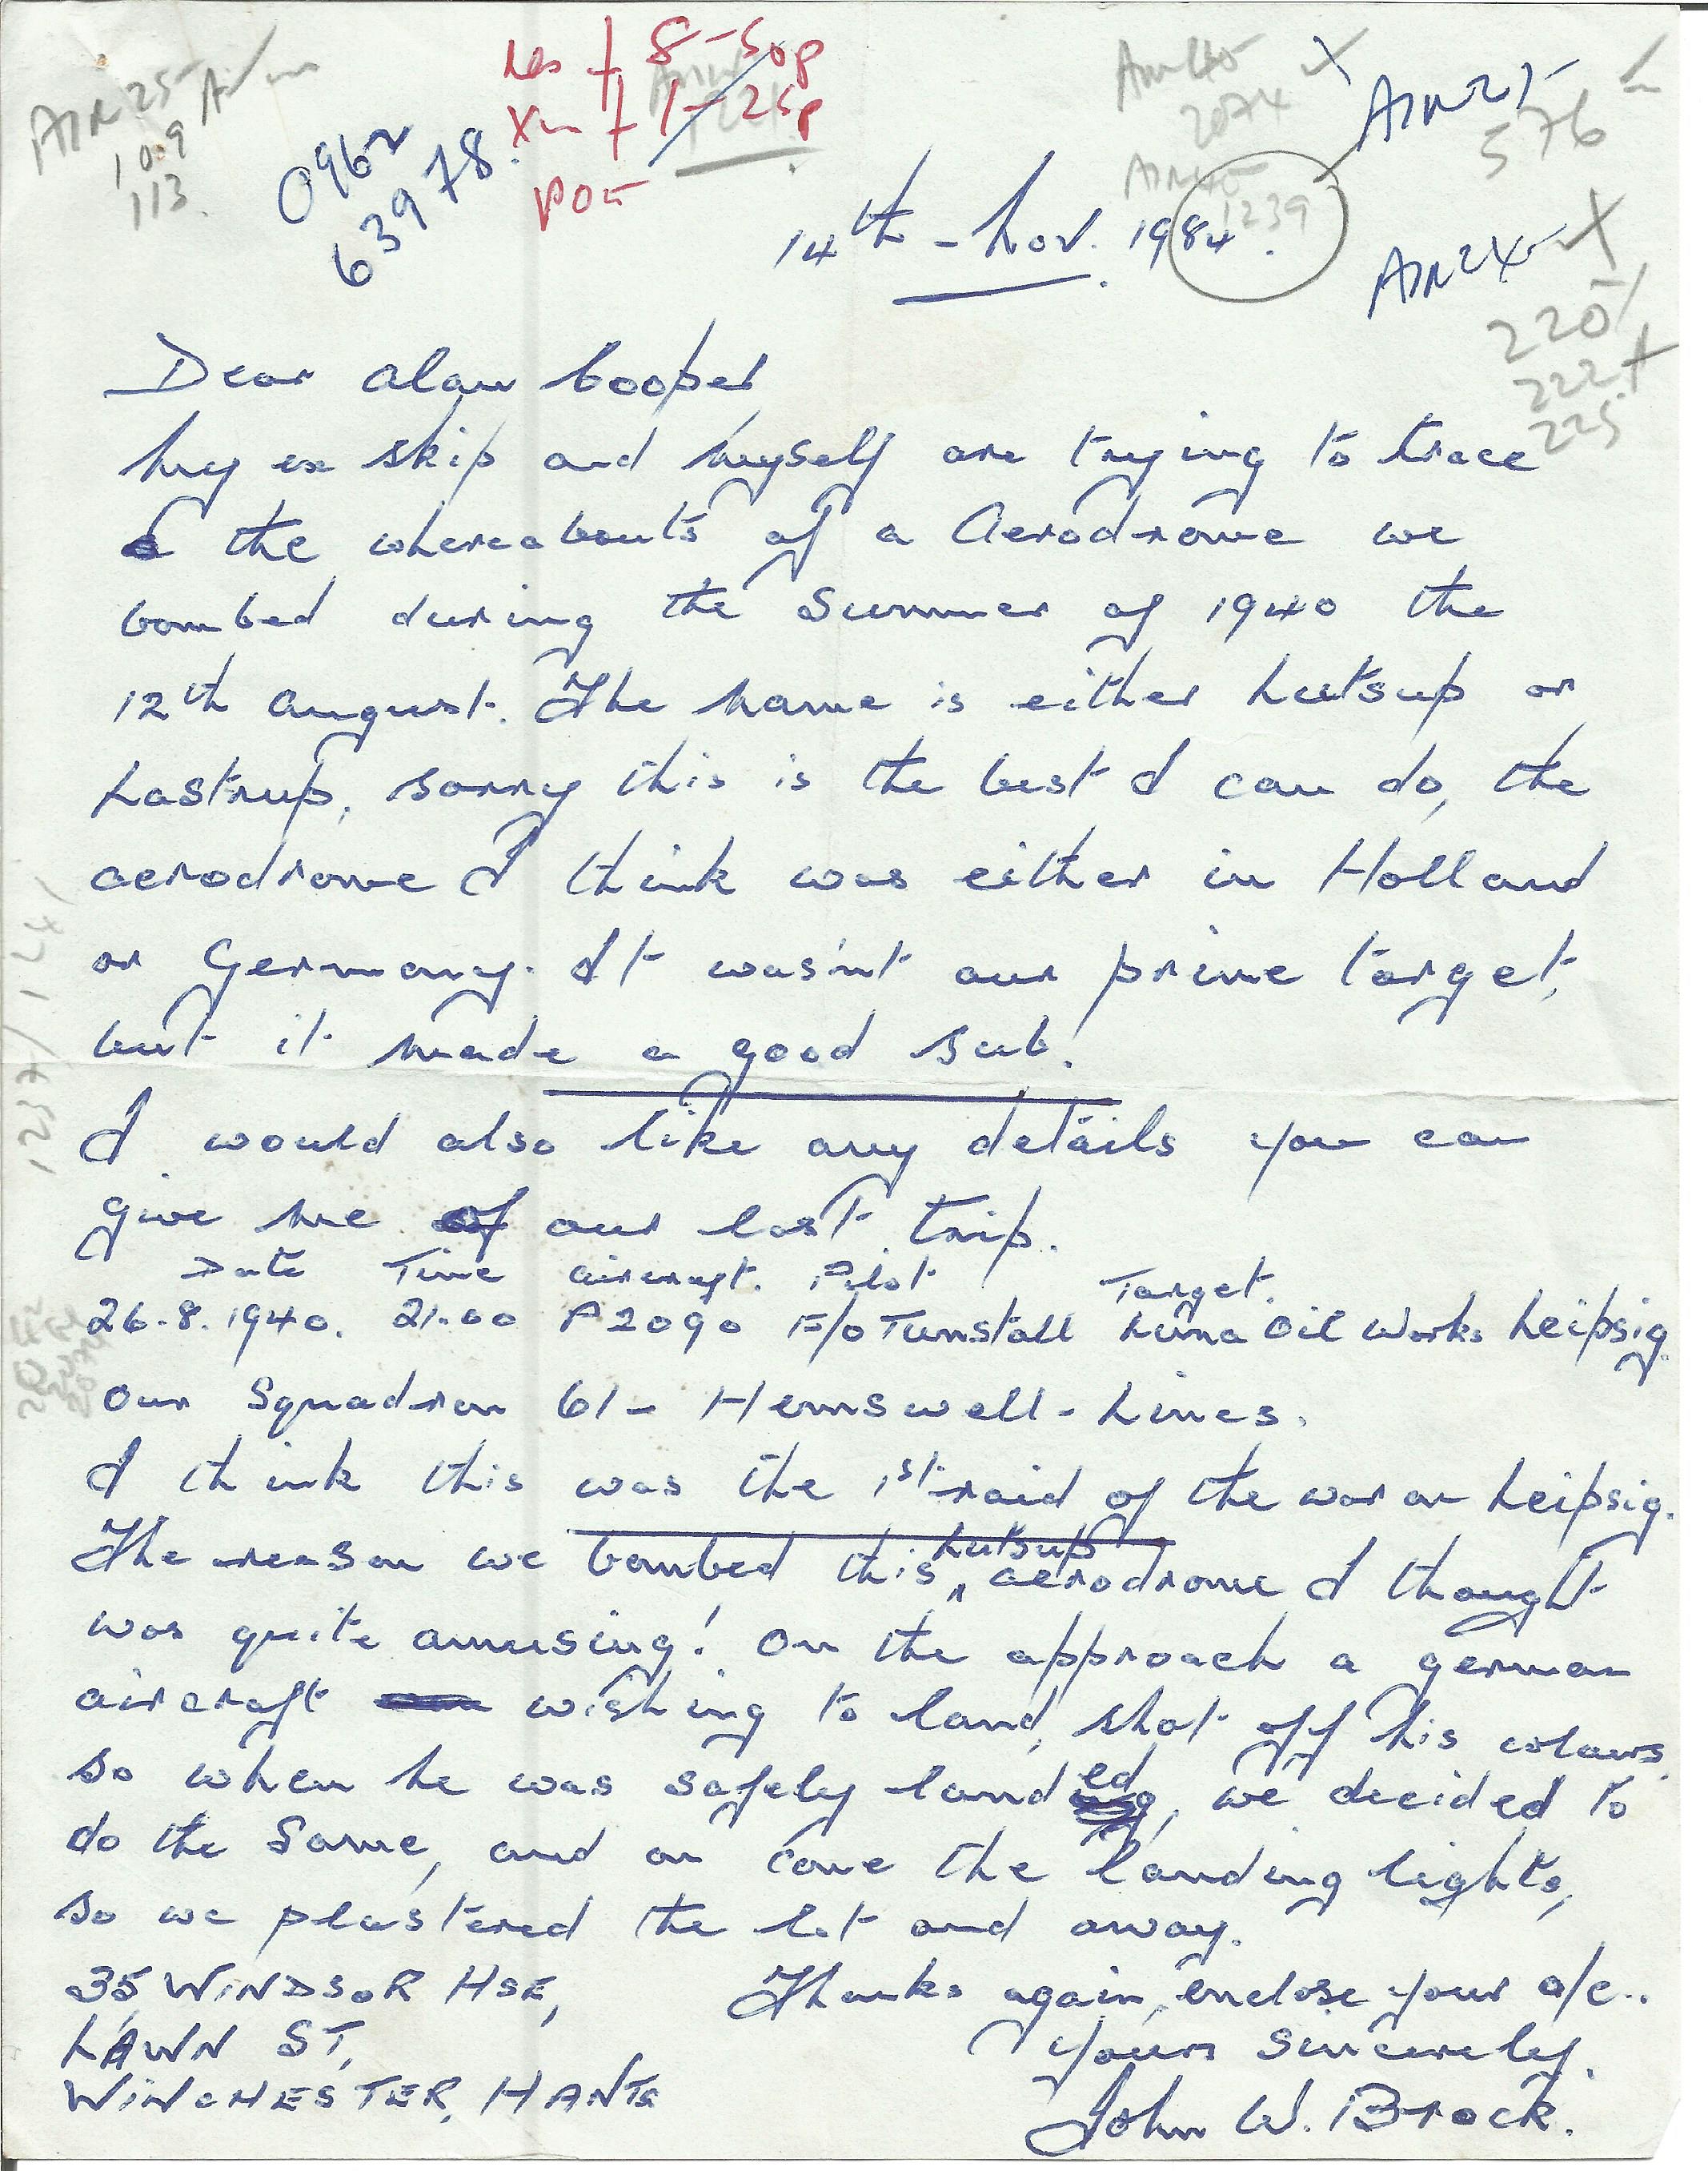 AIR 25
109
113.
0962
63978.
Res £ 8-50p
£ 1-25p
AIR 25
576
14th - Nov. 1984.
1239
AIR 24
220
222
225
Dear Alan Cooper
My ex skip and myself are trying to trace
the whereabouts of a Aerodrome we
bombed during the Summer of 1940 the
12th August. The name is either Lutsup or
Lastrup, sorry this is the best I can do, the
aerodrome I think was either in Holland
or Germany. It was'nt our prime target,
but it made a good sub!
I would also like any details you can
give me of our last trip.
Date Time Aircraft. Pilot Target.
26.8.1940. 21.00 P2090 F/O Tunstall Luna Oil Works Leipsig.
Our Squadron 61 - Hemswell - Lincs.
I think this was the 1st raid of the war on Leipsig.
The reason we bombed this Lutsup aerodrome I thought
was quite amusing! On the approach a german
aircraft wishing to land, shot off his colours,
so when he was safely landed, we decided to
do the same, and on came the landing lights,
so we plastered the lot and away.
35, WINDSOR HSE,
LAWN ST,
WINCHESTER, HANTS
Thanks again, enclose your a/c..
Yours Sincerely.
John W. Brock.
1237/124/